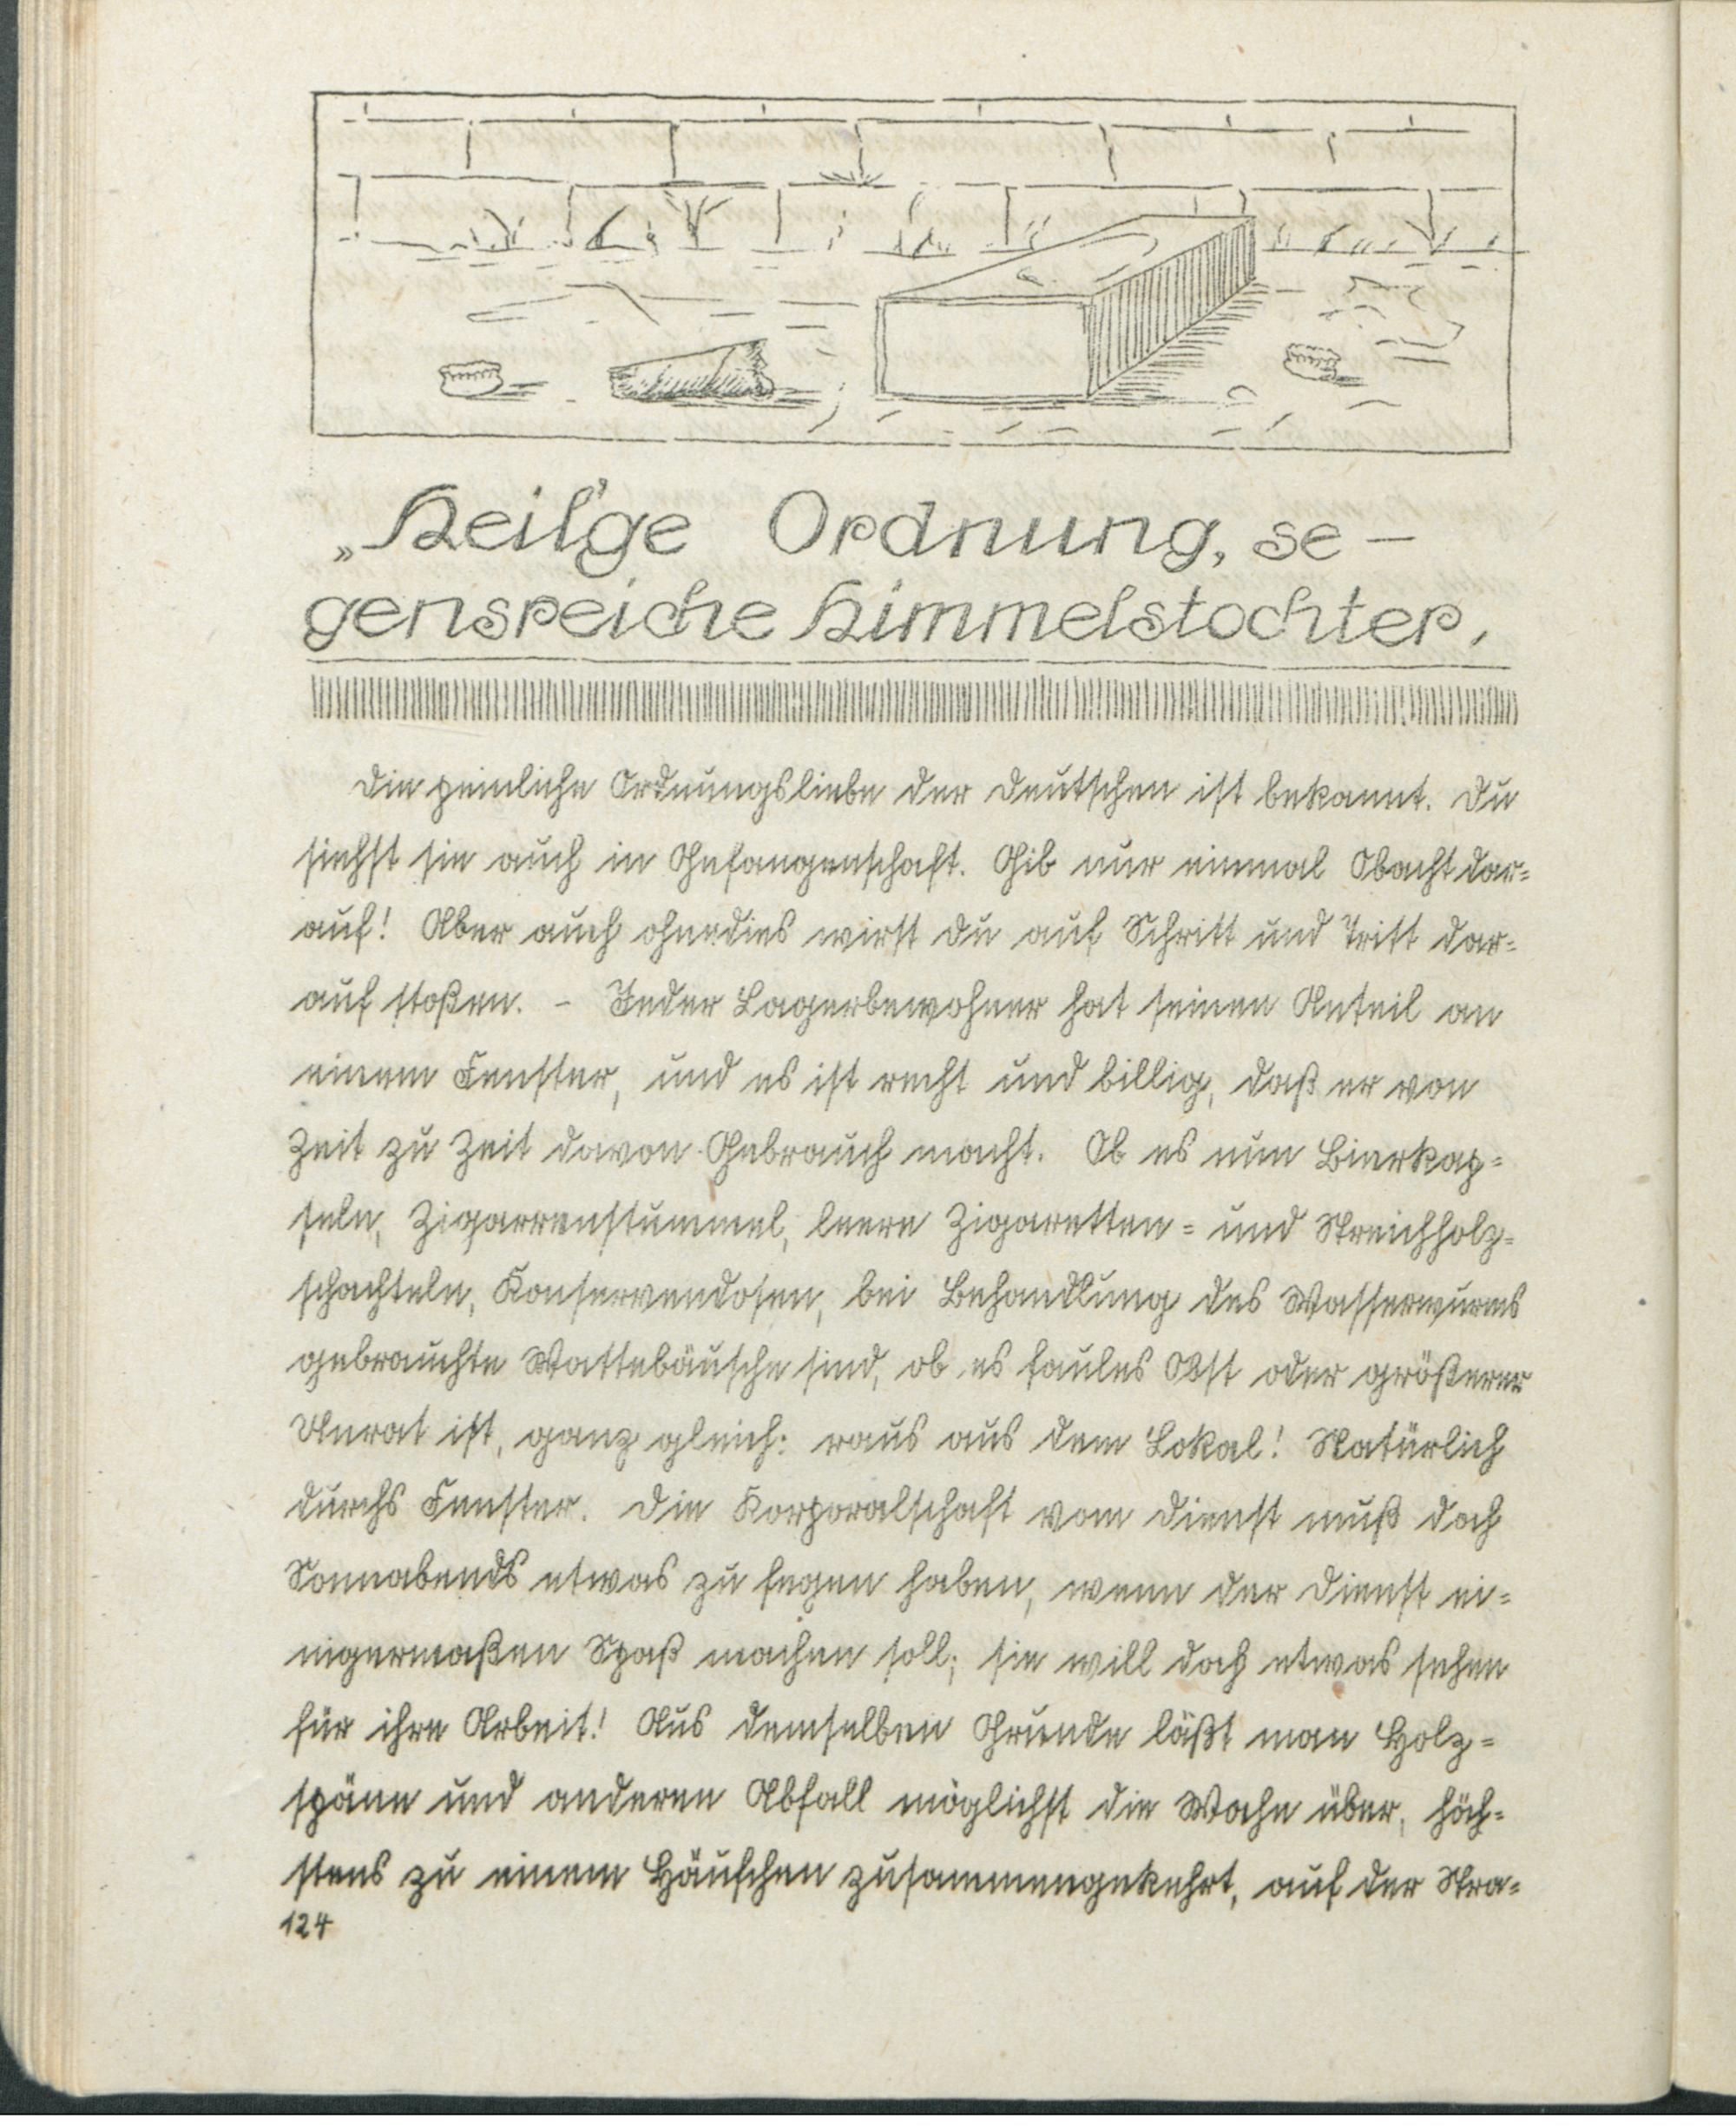 „Heil'ge Ordnung, se-
gensreiche Himmelstochter,
Die peinliche Ordnungsliebe der Deutschen ist bekannt. Du
siehst sie auch in Gefangenschaft. Gib nur einmal Obacht dar=
auf! Aber auch ohnedies wirst du auf Schritt und Tritt dar=
auf stoßen. - Jeder Lagerbewohner hat seinen Anteil an
einem Fenster, und es ist recht und billig, daß er von
Zeit zu Zeit davon Gebrauch macht. Ob es nun Bierkap=
seln, Zigarrenstummel, leere Zigaretten= und Streichholz=
schachteln, Konservendosen, bei Behandlung des Wasserwurms
gebrauchte Wattebäusche sind, ob es faules Obst oder größerer
Unrat ist, ganz gleich: raus aus dem Lokal! Natürlich
durchs Fenster. Die Korporalschaft vom Dienst muß doch
Sonnabends etwas zu fegen haben, wenn der Dienst ei=
nigermaßen Spaß machen soll; sie will doch etwas sehen
für ihre Arbeit! Aus demselben Grunde läßt man Holz=
späne und anderen Abfall möglichst die Woche über, höch=
stens zu einem Häufchen zusammengekehrt, auf der Stra=
124